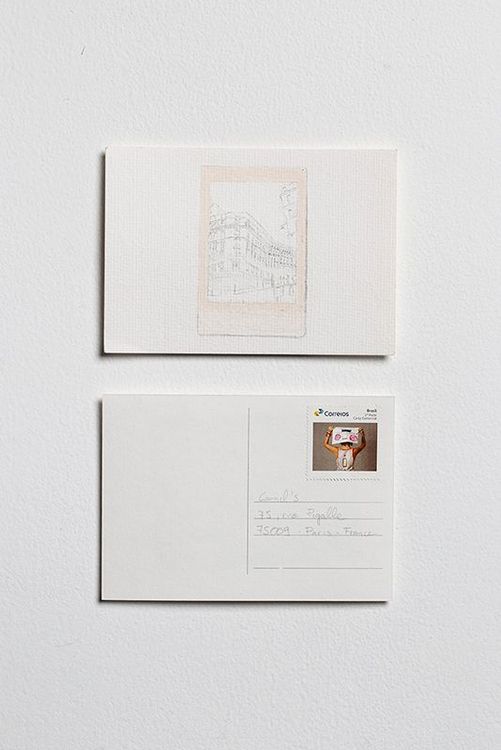 Correios
Brasil
1º Porte
Carta Comercial
75, rue Pigalle
75009 - Paris - France